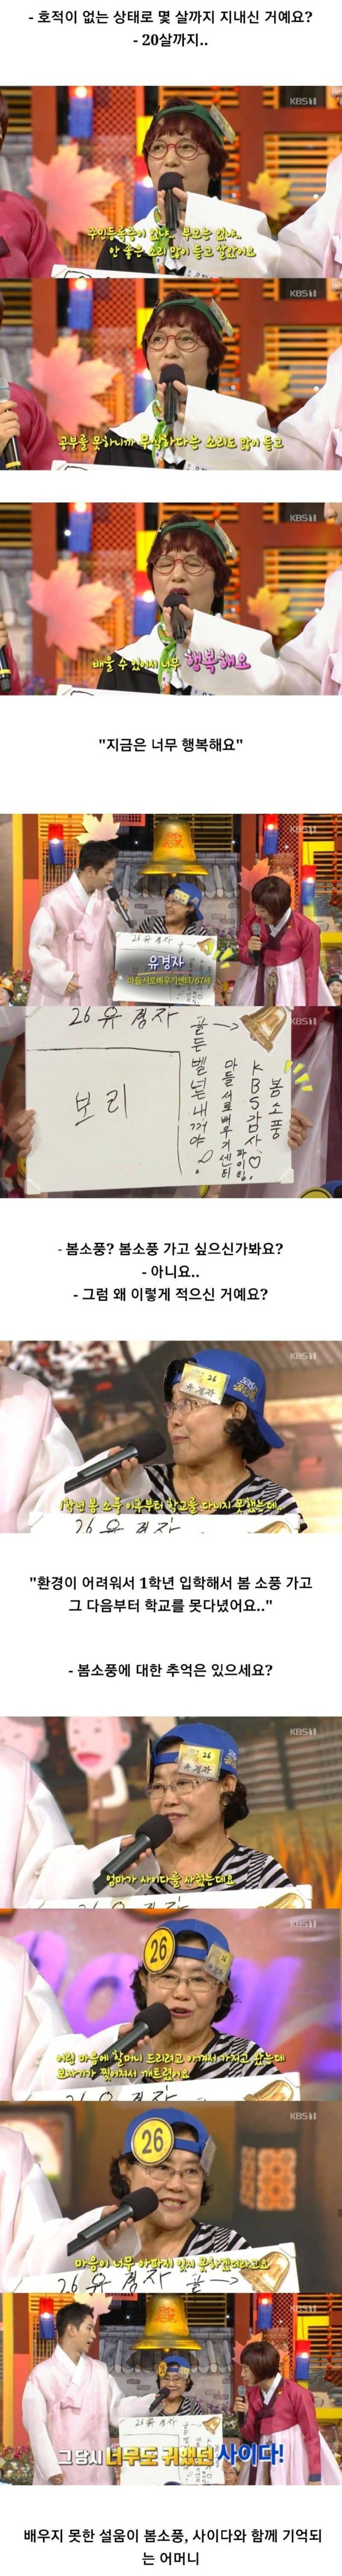 - 호적이 없는 상태로 몇 살까지 지내신 거예요?
- 20살까지..
KBS 1
주민등록증이 없냐.. 부모는 없냐..
안 좋은 소리 많이 듣고 살았어요
KBS 1
공부를 못하니까 무식하다는 소리도 많이 듣고
KBS 1
배울 수 있어서 너무 행복해요
"지금은 너무 행복해요"
KBS 1
26 유경자
유경자
마들서로배우기센터/67세
KBS 1
26 유경자
골든벨 넌 내꺼야
보리
마들서로배우기센터
파이팅.
KBS감사♡
봄소풍
- 봄소풍? 봄소풍 가고 싶으신가봐요?
- 아니요..
- 그럼 왜 이렇게 적으신 거예요?
KBS 1
유경자
1학년 봄 소풍 이후부터 학교를 다니지 못했는데..
26 유경자
"환경이 어려워서 1학년 입학해서 봄 소풍 가고
그 다음부터 학교를 못다녔어요.."
- 봄소풍에 대한 추억은 있으세요?
KBS 1
26
유경자
엄마가 사이다를 사줬는데요
KBS 1
26
어린 마음에 할머니 드리려고 아껴서 가지고 왔는데
보자기가 찢어져서 깨트렸어요
KBS 1
26
마음이 너무 아파서 잊지 못하겠더라고요
26 유경자 골
26 유경자
그 당시 너무도 귀했던 사이다!
배우지 못한 설움이 봄소풍, 사이다와 함께 기억되
는 어머니